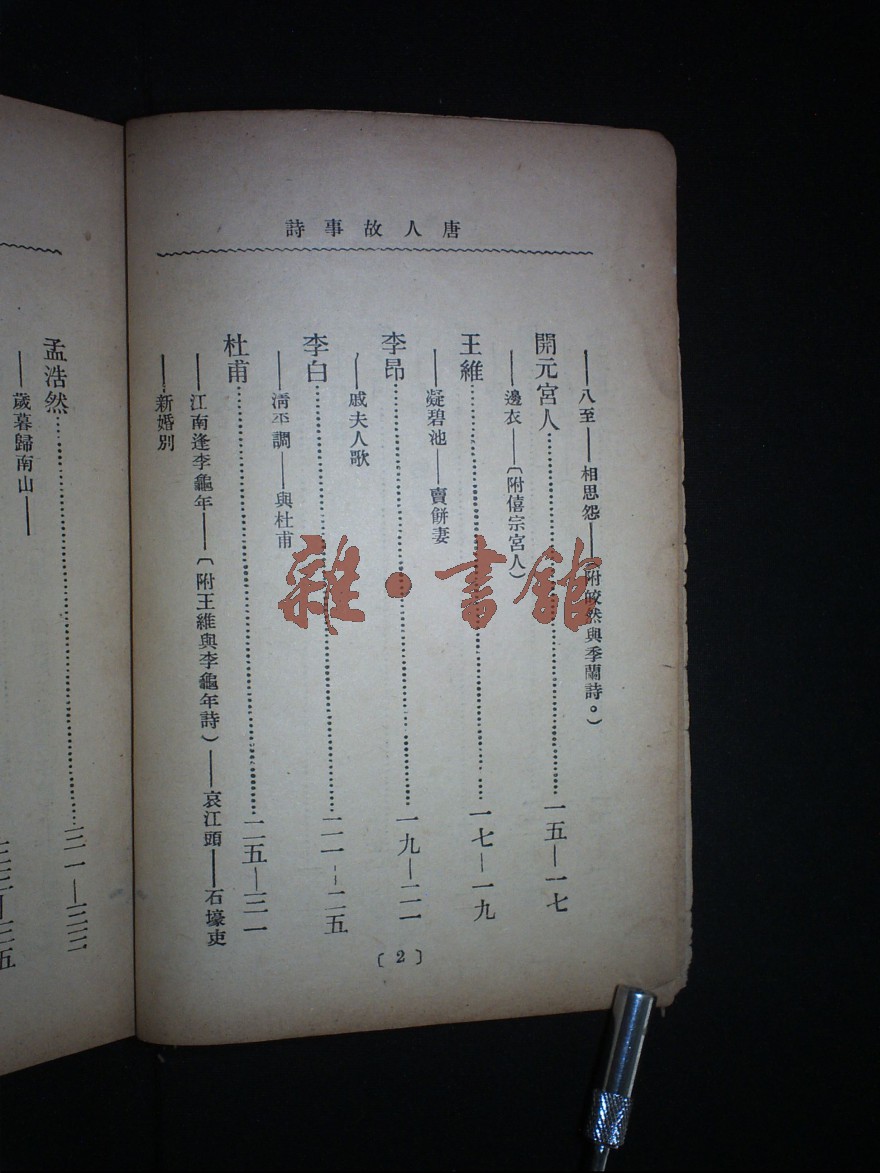 唐人故事詩
——八至——相思怨——(附皎然與季蘭詩。)
開元宮人……一五—一七
——邊衣——(附僖宗宮人)
王維……一七—一九
——凝碧池——賣餅妻
李昂……一九—二一
——戚夫人歌
李白……二一—二五
——清平調——與杜甫
杜甫……二五—三一
——江南逢李龜年——(附王維與李龜年詩)——哀江頭——石壕吏
——新婚別
〔2〕
孟浩然……三一—三三
——歲暮歸南山——
三三—三五
雜·書館